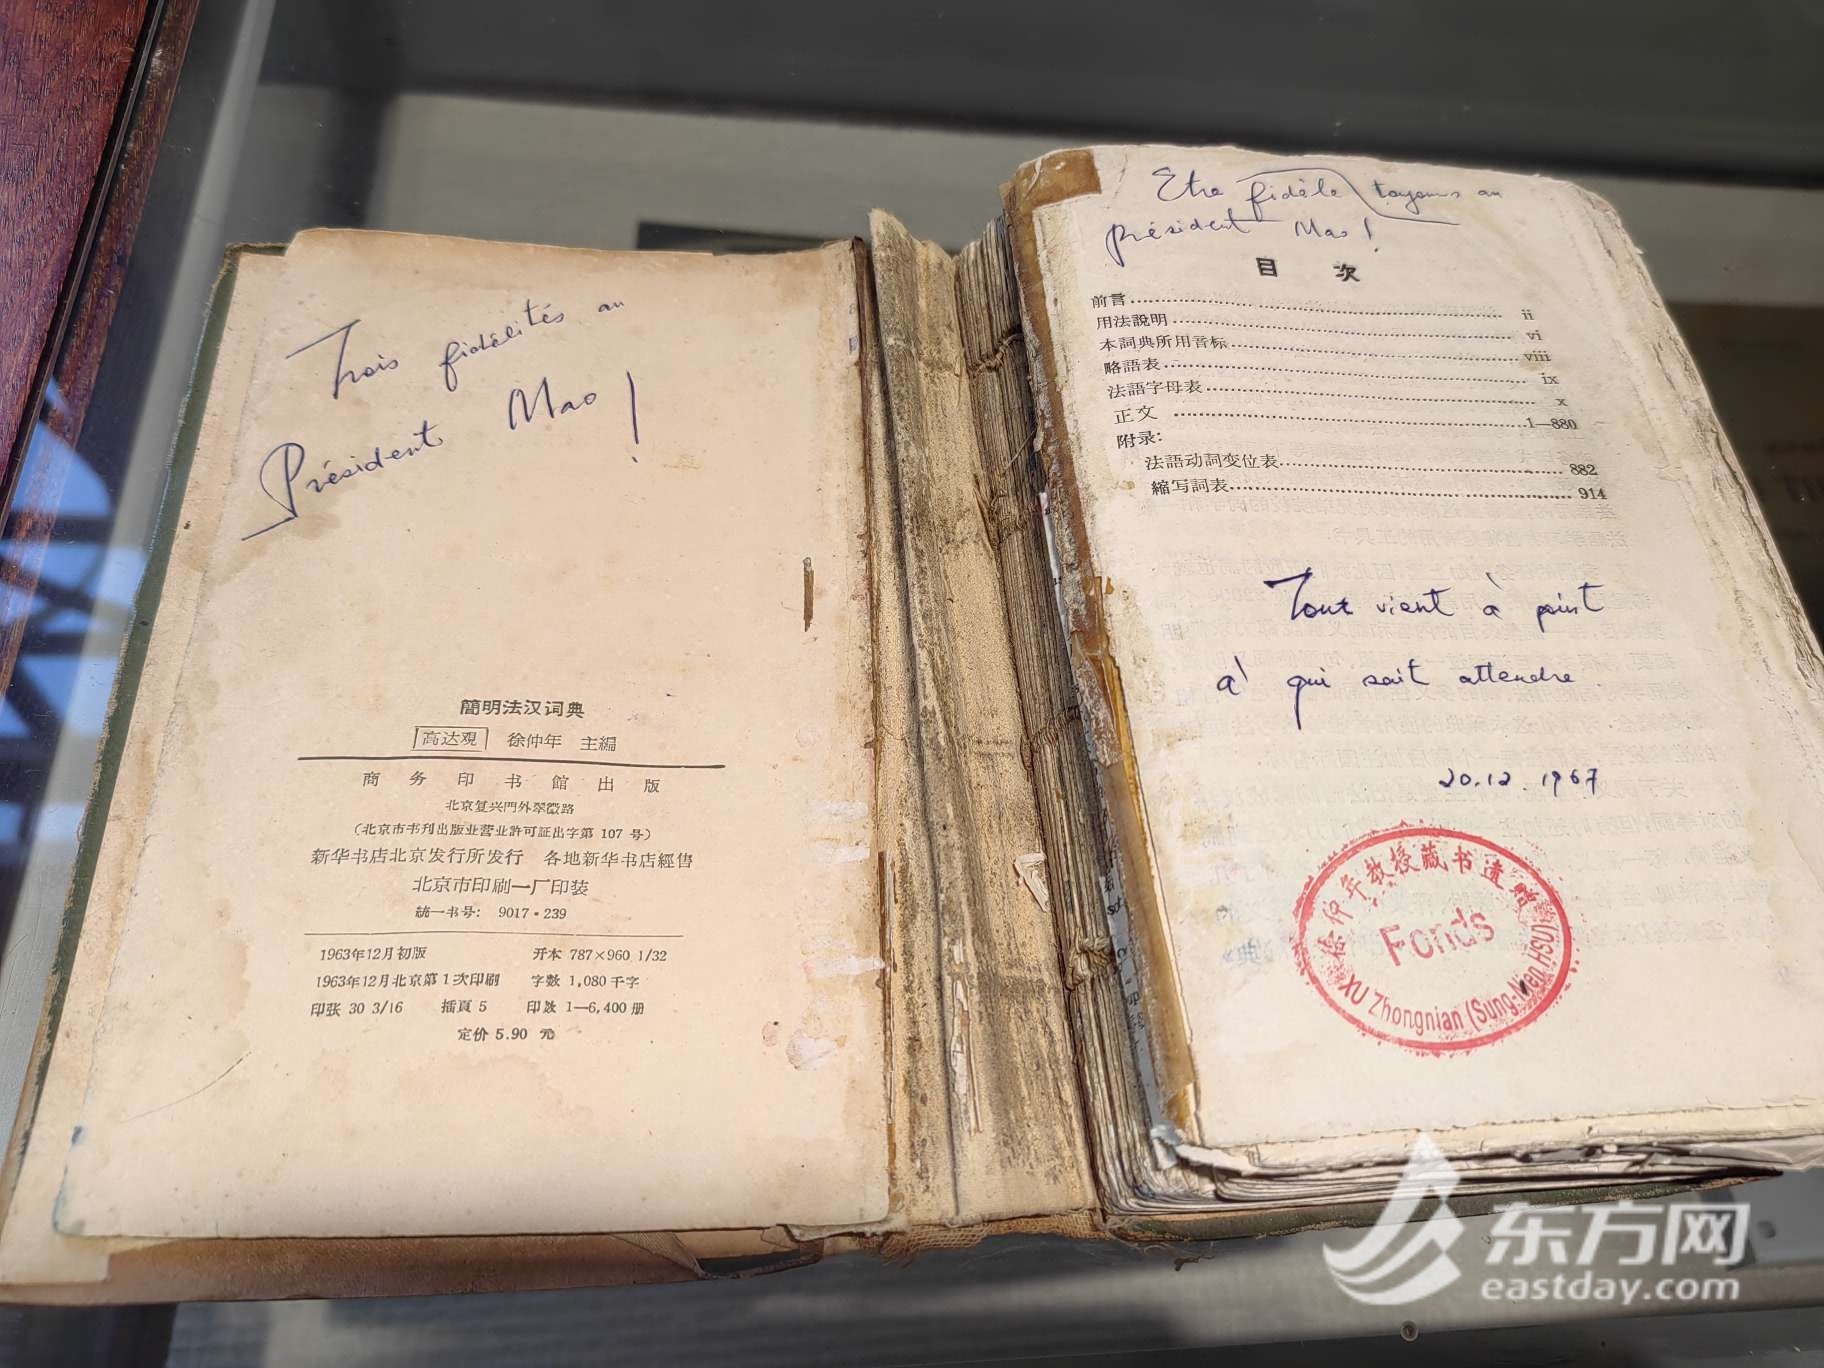 Trois fidélités au
Président Mao !
簡明法汉词典
高达观 徐仲年 主編
商务印书館出版
北京复兴門外翠微路
(北京市书刊出版业营业許可証出字第 107 号)
新华书店北京发行所发行 各地新华书店經售
北京市印刷一厂印装
統一书号: 9017·239
1963年12月初版 开本 787×960 1/32
1963年12月北京第1次印刷 字数 1,080千字
印张 30 3/16 插頁 5 印数 1—6,400 册
定价 5.90 元
Etre fidèle toujours au
président Mao !
目 次
前言 ii
用法說明 vi
本詞典所用音标 viii
略語表 ix
法語字母表 x
正文 1—880
附录:
法語动詞变位表 882
縮写詞表 914
Tout vient à point
à qui sait attendre
20.12.1967
徐仲年教授藏书遗
Fonds
XU Zhongnian (Sung-Nien HSU)
东方网
eastday.com